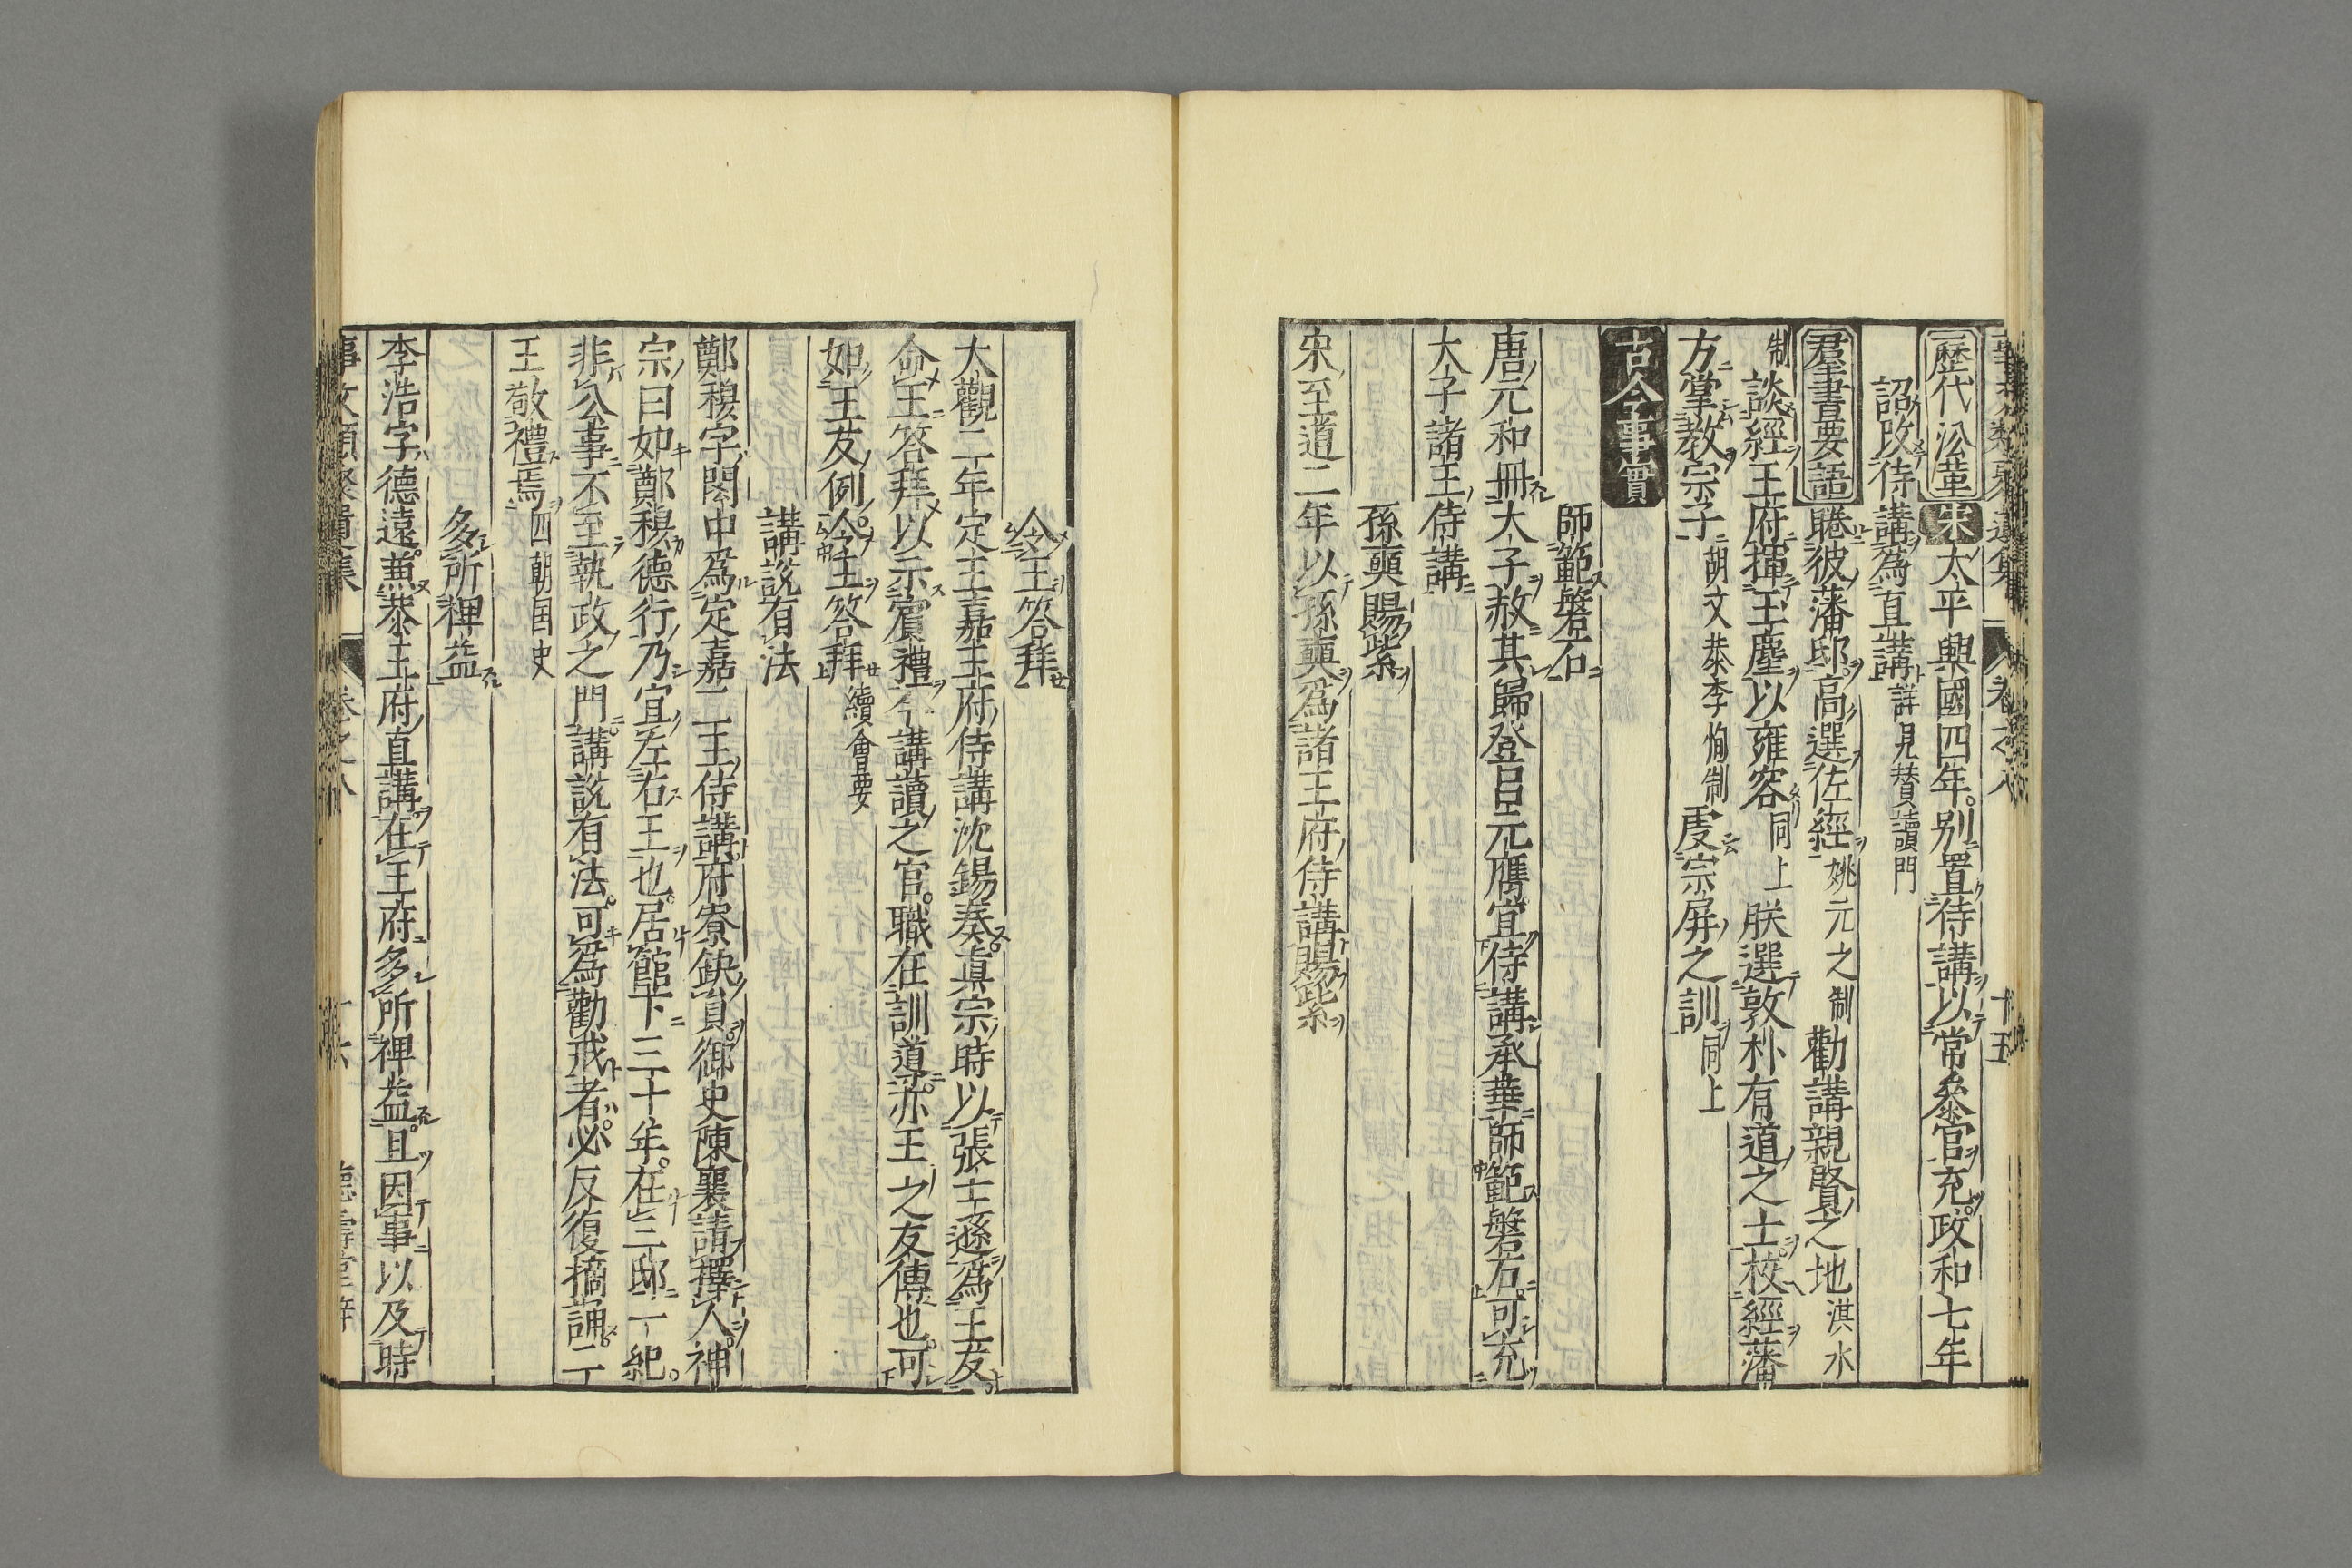 歷代沿革 宋太平興國四年別置侍講以常參官充政和七年
詔改侍講爲直講詳見賛讀門
羣書要語 睠彼藩邸高選佐經姚元之制勸講親賢之地淇水
制談經王府揮玉麈以雍容同上朕選敦朴有道之士校經藩
方掌教宗子胡文恭李恂制虔宗屏之訓同上
古今事實
師範磐石
唐元和冊太子赦其歸登呂元膺宜侍講承華師範磐石可充
太子諸王侍講
孫奭賜紫
宋至道二年以孫奭爲諸王府侍講賜紫
令王答拜
大觀二年定王嘉王府侍講沈錫奏眞宗時以張士遜爲王友
命王答拜以示賔禮今講讀之官職在訓導亦王之友傅也可
如王友例令王答拜續會要
講說有法
鄭穆字閎中爲定嘉二王侍講府寮缺員御史陳襄請擇人神
宗曰如鄭穆德行乃宜左右王也居館下三十年在三邸一紀
非公事不至執政之門講說有法可爲勸戒者必反復摘誦二
王敬禮焉四朝国史
多所裨益
李浩字德遠兼恭王府直講在王府多所裨益且因事以及時
事文類聚遺集 卷之八